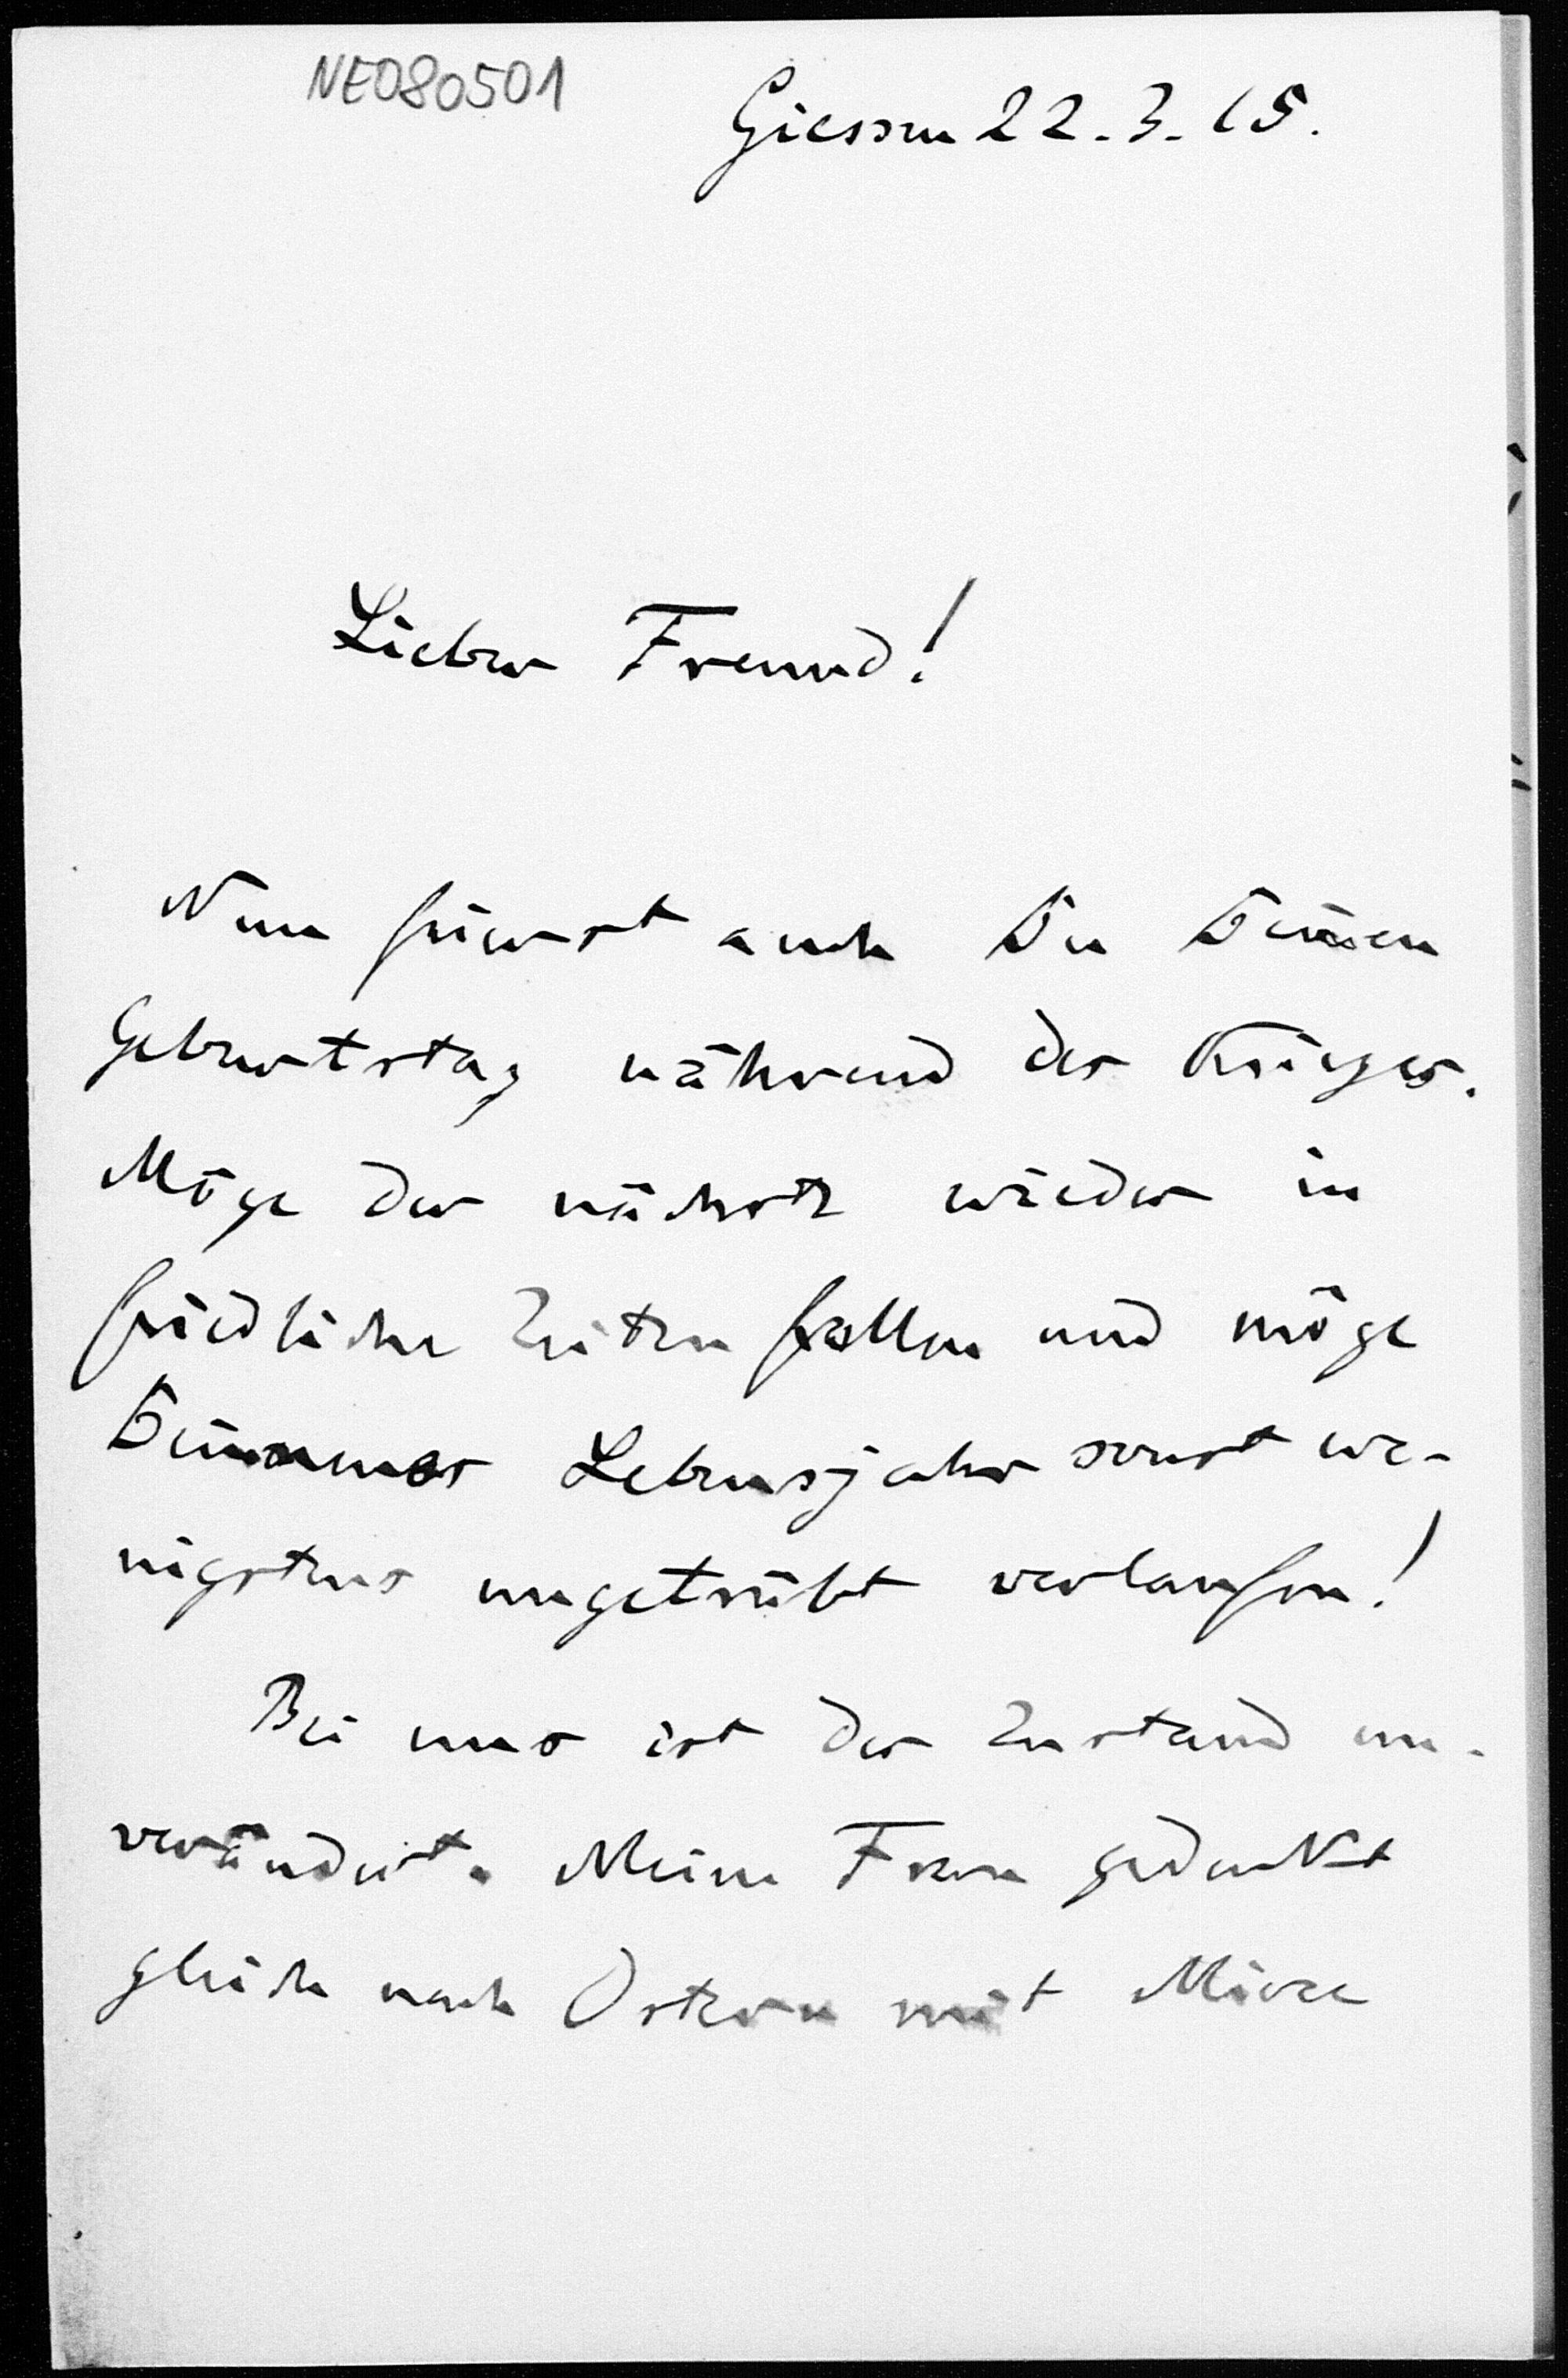 NE080501
Giessen 22.3.15.
Lieber Freund!
Nun feierst auch Du Deinen
Geburtstag während des Krieges.
Möge der nächste wieder in
friedliche Zeiten fallen und möge
Dein neues Lebensjahr sonst we-
nigstens ungetrübt verlaufen!
Bei uns ist der Zustand un-
verändert. Meine Frau gedenkt
gleich nach Ostern mit